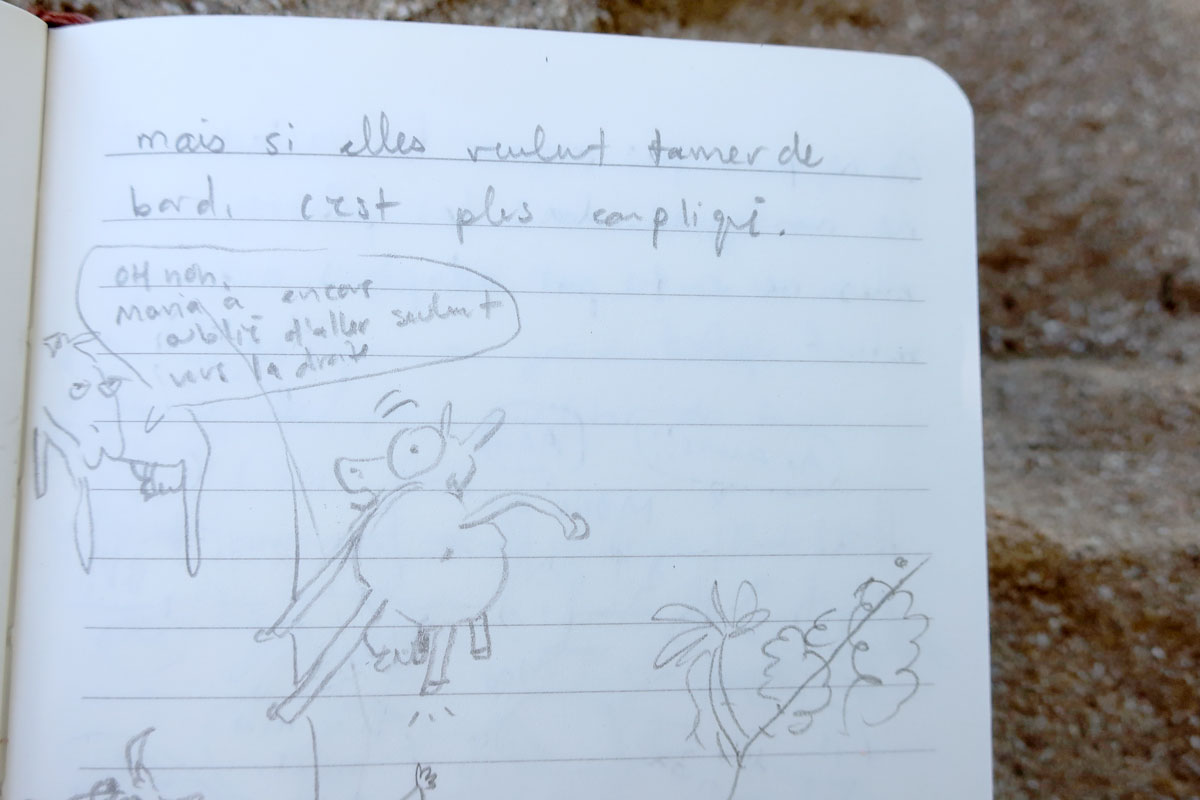 mais si elles veulent tamer de
bord, c'est plus compliqué.
OH non,
Maria a encore
oublié d'aller seulement
vers la droite